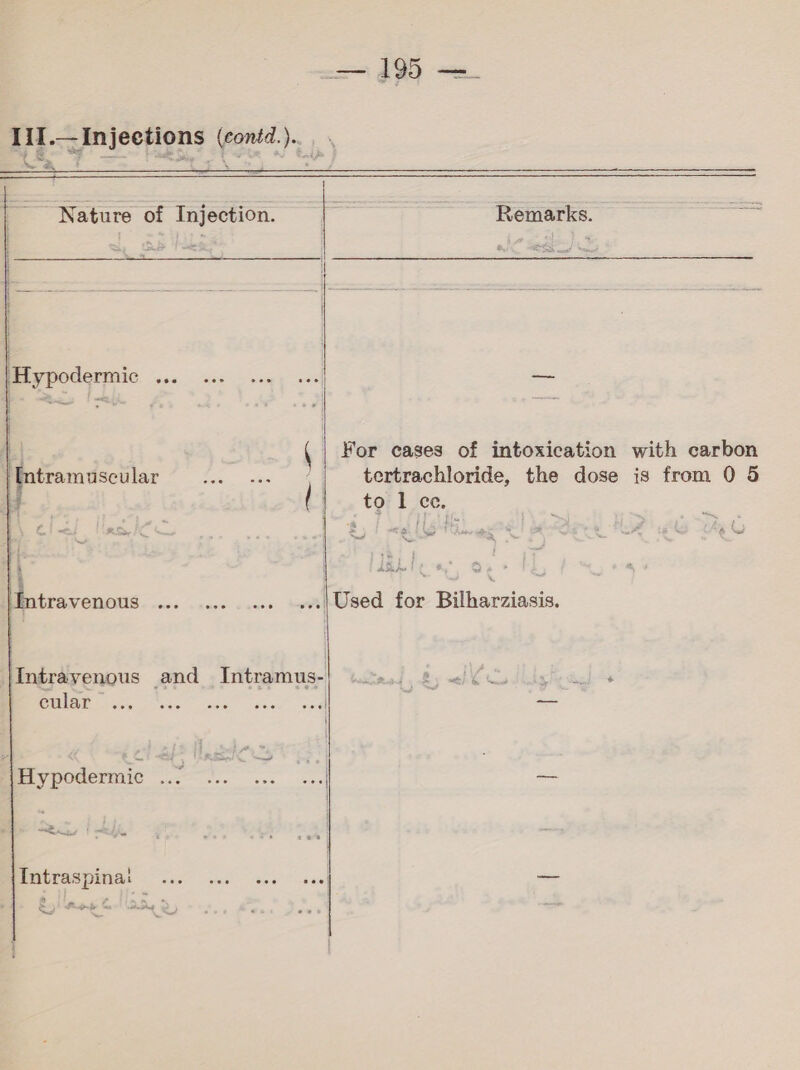 — 195 —
III.—Injections (contd.).
Nature of Injection. Remarks.
Hypodermic ... ... ... ... —
For cases of intoxication with carbon
Intramuscular ... ... tertrachloride, the dose is from 0 5
to 1 cc.
Intravenous ... ... ... ... Used for Bilharziasis.
Intravenous and Intramus-
cular ... ... ... ... ... —
Hypodermic ... ... ... ... —
Intraspinal ... ... ... ... —